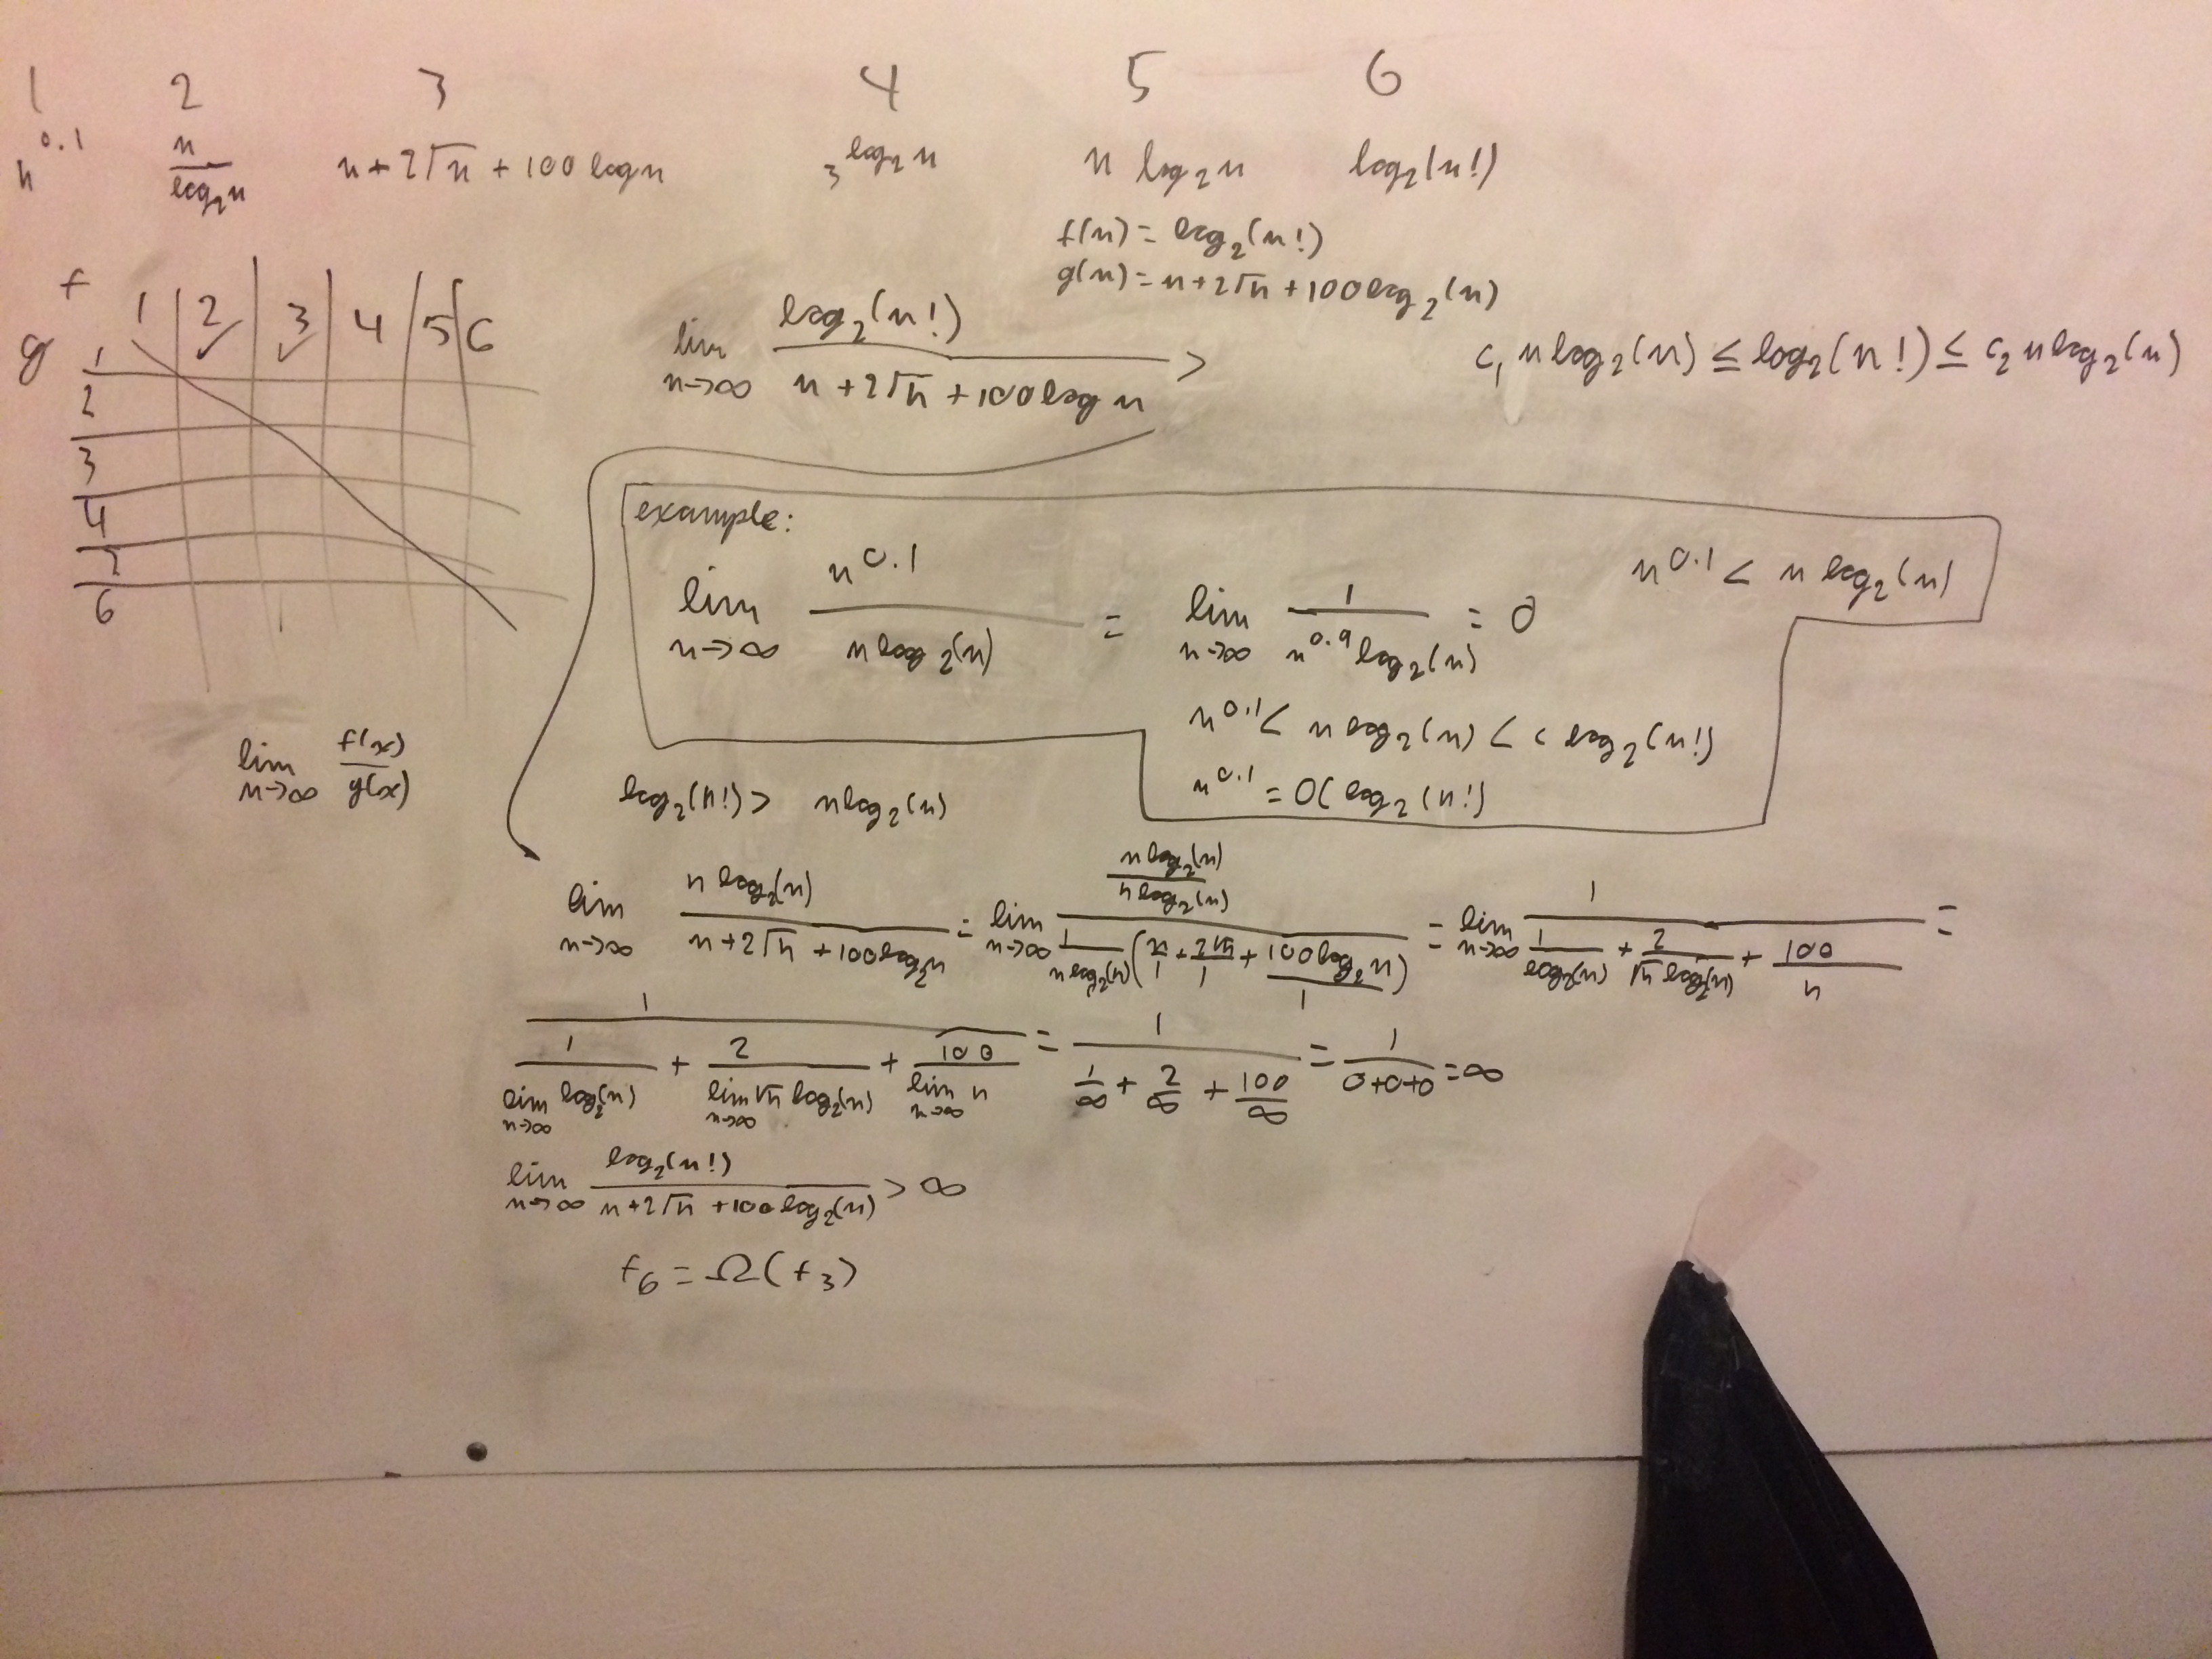 1 2 3 4 5 6
n^0.1 n/log₂n n+2√n+100logn 3^log₂n n log₂n log₂(n!)
f(n)= log₂(n!)
g(n)= n+2√n+100log₂(n)
f 1 2✓ 3✓ 4 5 6
g 1
2
3
4
6
lim n→∞ log₂(n!)/(n+2√n+100log n) >
c₁ n log₂(n) ≤ log₂(n!) ≤ c₂ n log₂(n)
example:
lim n→∞ n^0.1/(n log₂(n)) = lim n→∞ 1/(n^0.9 log₂(n)) = 0
n^0.1 < n log₂(n)
n^0.1 < n log₂(n) < c log₂(n!)
n^0.1 = O( log₂(n!)
lim n→∞ f(x)/g(x)
log₂(n!) > n log₂(n)
lim n→∞ n log₂(n)/(n+2√n+100log₂n) = lim n→∞ (n log₂(n)/n log₂(n))/(1/(n log₂(n)) (n/1 + 2√n/1 + 100log₂n/1)) = lim n→∞ 1/(1/log₂(n) + 2/(√n log₂(n)) + 100/n) =
1/(1/(lim n→∞ log₂(n)) + 2/(lim n→∞ √n log₂(n)) + 100/(lim n→∞ n)) = 1/(1/∞ + 2/∞ + 100/∞) = 1/(0+0+0) = ∞
lim n→∞ log₂(n!)/(n+2√n+100log₂(n)) > ∞
f₆ = Ω(f₃)